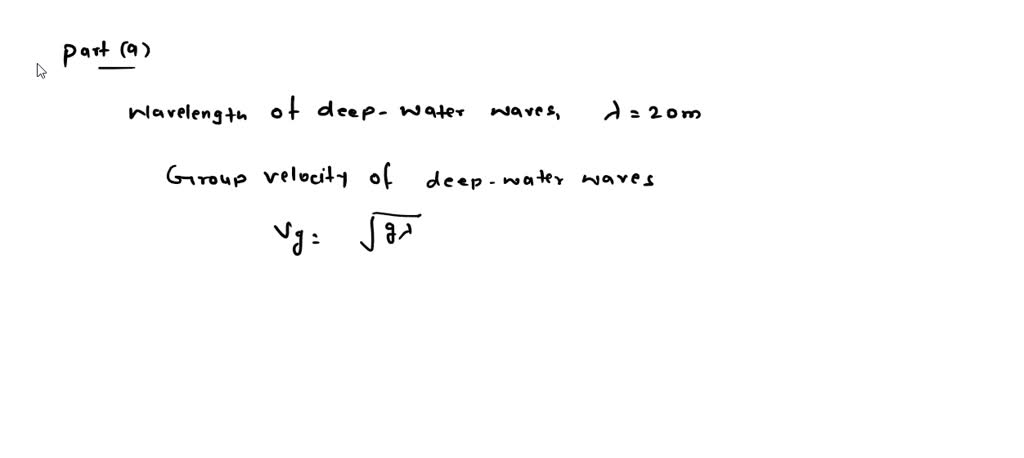 Part (a)
Wavelength of deep-water waves, λ = 20m
Group velocity of deep-water waves
Vg = √gλ